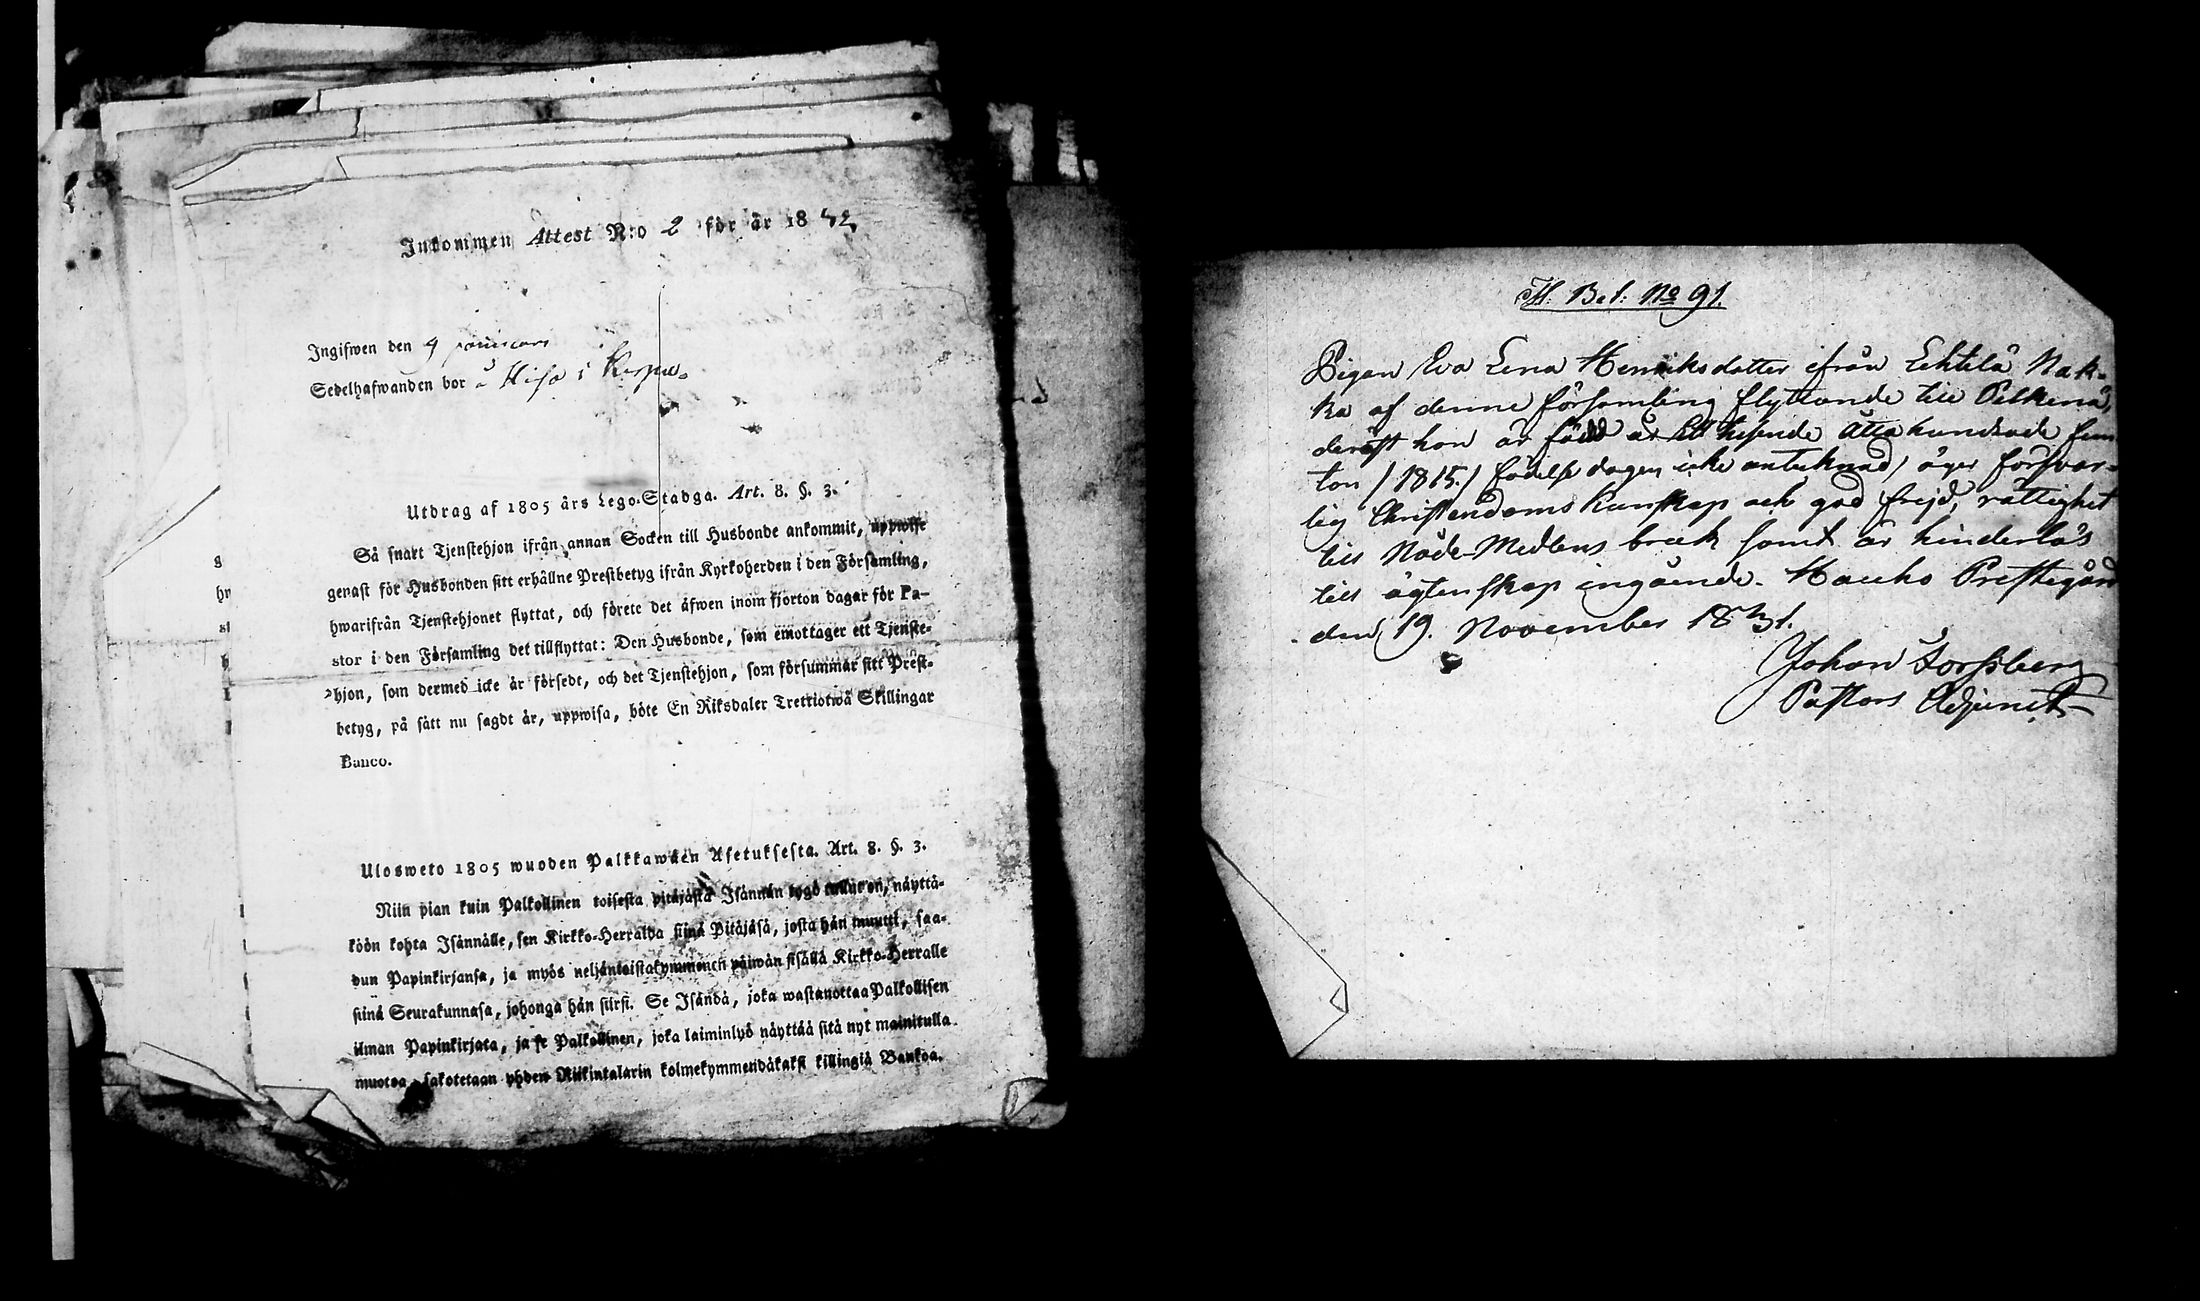 Inkommen Attest N:o 2 för år 1842
Ingifwen den 9 januari
Sedelhafwanden bor å Hifo i
Utdrag af 1805 års Lego-Stadga. Art. 8. §. 3.
Så snart Tjenstehjon ifrån annan Socken till Husbonde ankommit, uppwise
genast för Husbonden sitt erhållne Prestbetyg ifrån Kyrkoherden i den Församling,
hwarifrån Tjenstehjonet flyttat, och förete det äfwen inom fjorton dagar för Pa-
stor i den Församling det tillflyttat: Den Husbonde, som emottager ett Tjenste-
hjon, som dermed icke är försedt, och det Tjenstehjon, som försummar sitt Prest-
betyg, på sätt nu sagdt är, uppwisa, böte En Riksdaler Trettiotwå Skillingar
Banco.
Ulosweto 1805 wuoden Palkkawäen Asetuksesta. Art. 8. §. 3.
Niin pian kuin Palkollinen toisesta pitäjästä Isännän tygö tullut on, näyttä-
köön kohta Isännälle, sen Kirkko-Herralda siinä Pitäjäsä, josta hän muutti, saa-
dun Papinkirjansa, ja myös neljäntoistakymmenen päiwän sisällä Kirkko-Herralle
siinä Seurakunnasa, johonga hän siirsi. Se Isändä, joka wastanottaa Palkollisen
ilman Papinkirjata, ja se Palkollinen, joka laiminlyö näyttää sitä nyt mainitulla
muotoa, sakotetaan yhden Riikintalarin kolmekymmendäkaksi killingiä Bankoa.
g
hr
st
H: Bet: No 91.
Pigan Eva Lena Henriksdotter ifrån Lehtilä Nak-
ka af denne församling flyttande till Pelkenä,
deräst hon är född år Ett tusende åtta hundrade fem
ton /1815./ födelse dagen icke antecknad, äger försvar-
lig Christendoms kunskap och god frejd, rättighet
till Nåde-Medlens bruk samt är hinderlös
till ägtenskap ingående. Hauho Prestegård
den 19. November 1841.
Johan Forssberg
Pastors Adjunct